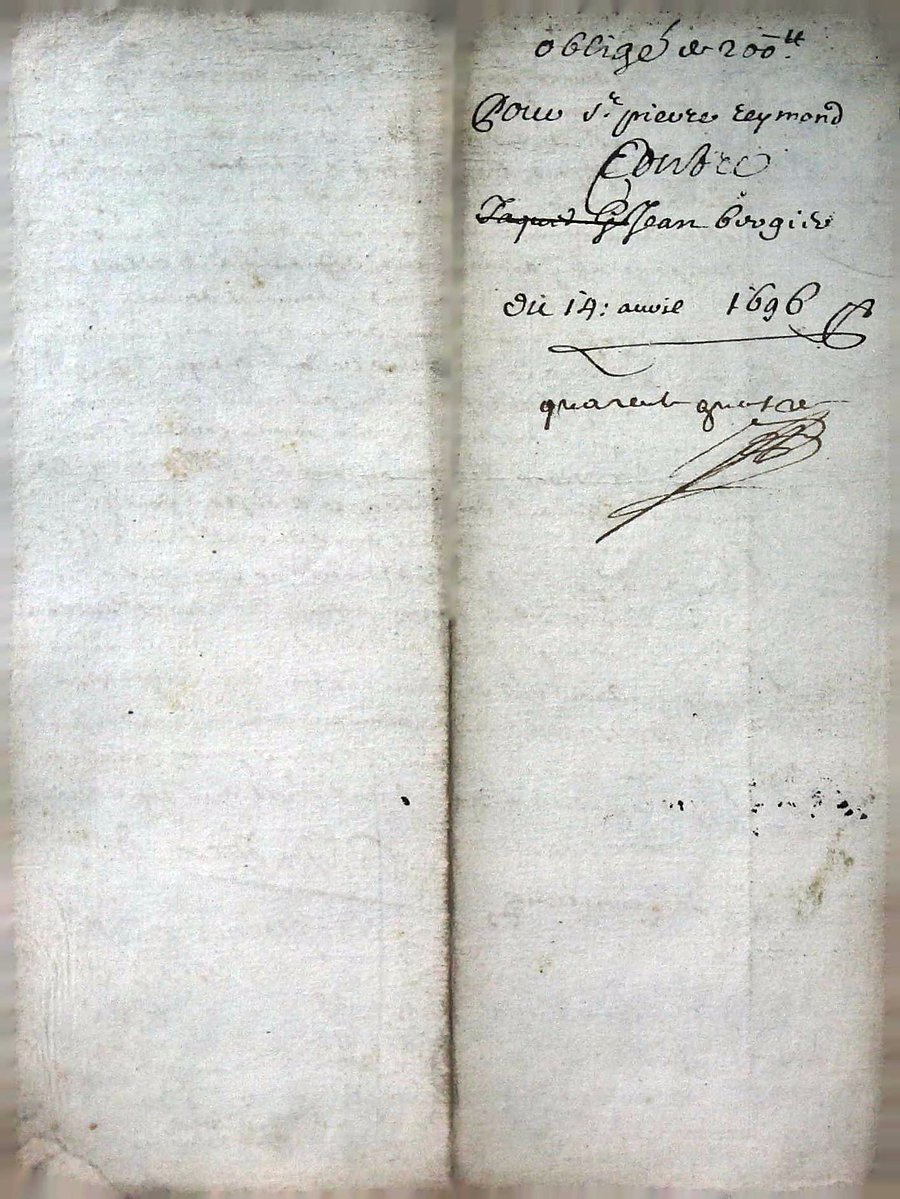 oblige de 200 ₶.
Pour sr. pierre reymond
Contre
Jaques & Jean brugier
du 14: avril 1696
quarente quatre